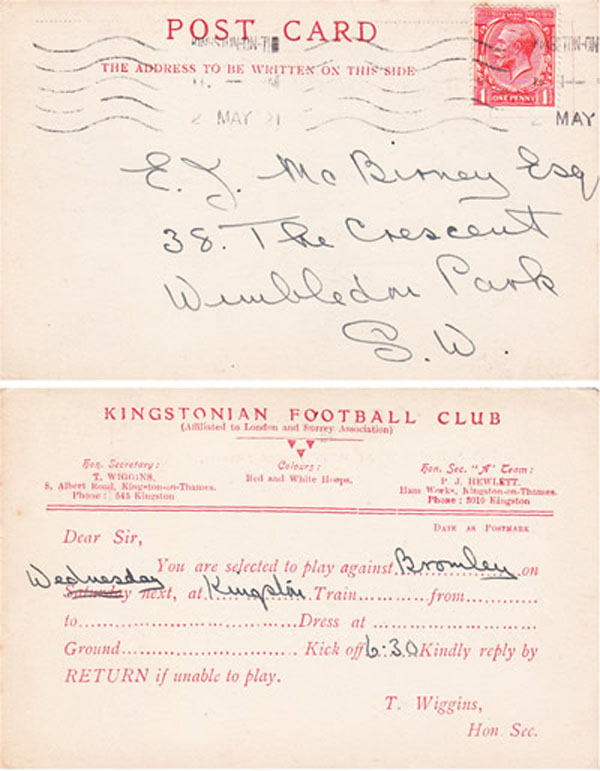 POST CARD
KINGSTON-ON-TH
THE ADDRESS TO BE WRITTEN ON THIS SIDE
2 MAY 21
2 MAY
ONE PENNY
1
E. J. Mc Birney Esq
38. The Crescent
Wimbledon Park
S.W.
KINGSTONIAN FOOTBALL CLUB
(Affiliated to London and Surrey Association)
Hon. Secretary:
T. WIGGINS.
8, Albert Road, Kingston-on-Thames.
Phone: 645 Kingston
Colours:
Red and White Hoops.
Hon. Sec. "A" Team:
P. J. HEWLETT.
Ham Works, Kingston-on-Thames.
Phone: 3010 Kingston
DATE AS POSTMARK
Dear Sir,
You are selected to play against Bromley on
Wednesday
Saturday next, at Kingston Train............from............
to........................Dress at ............................
Ground.................... Kick off 6.30 Kindly reply by
RETURN if unable to play.
T. Wiggins,
Hon. Sec.